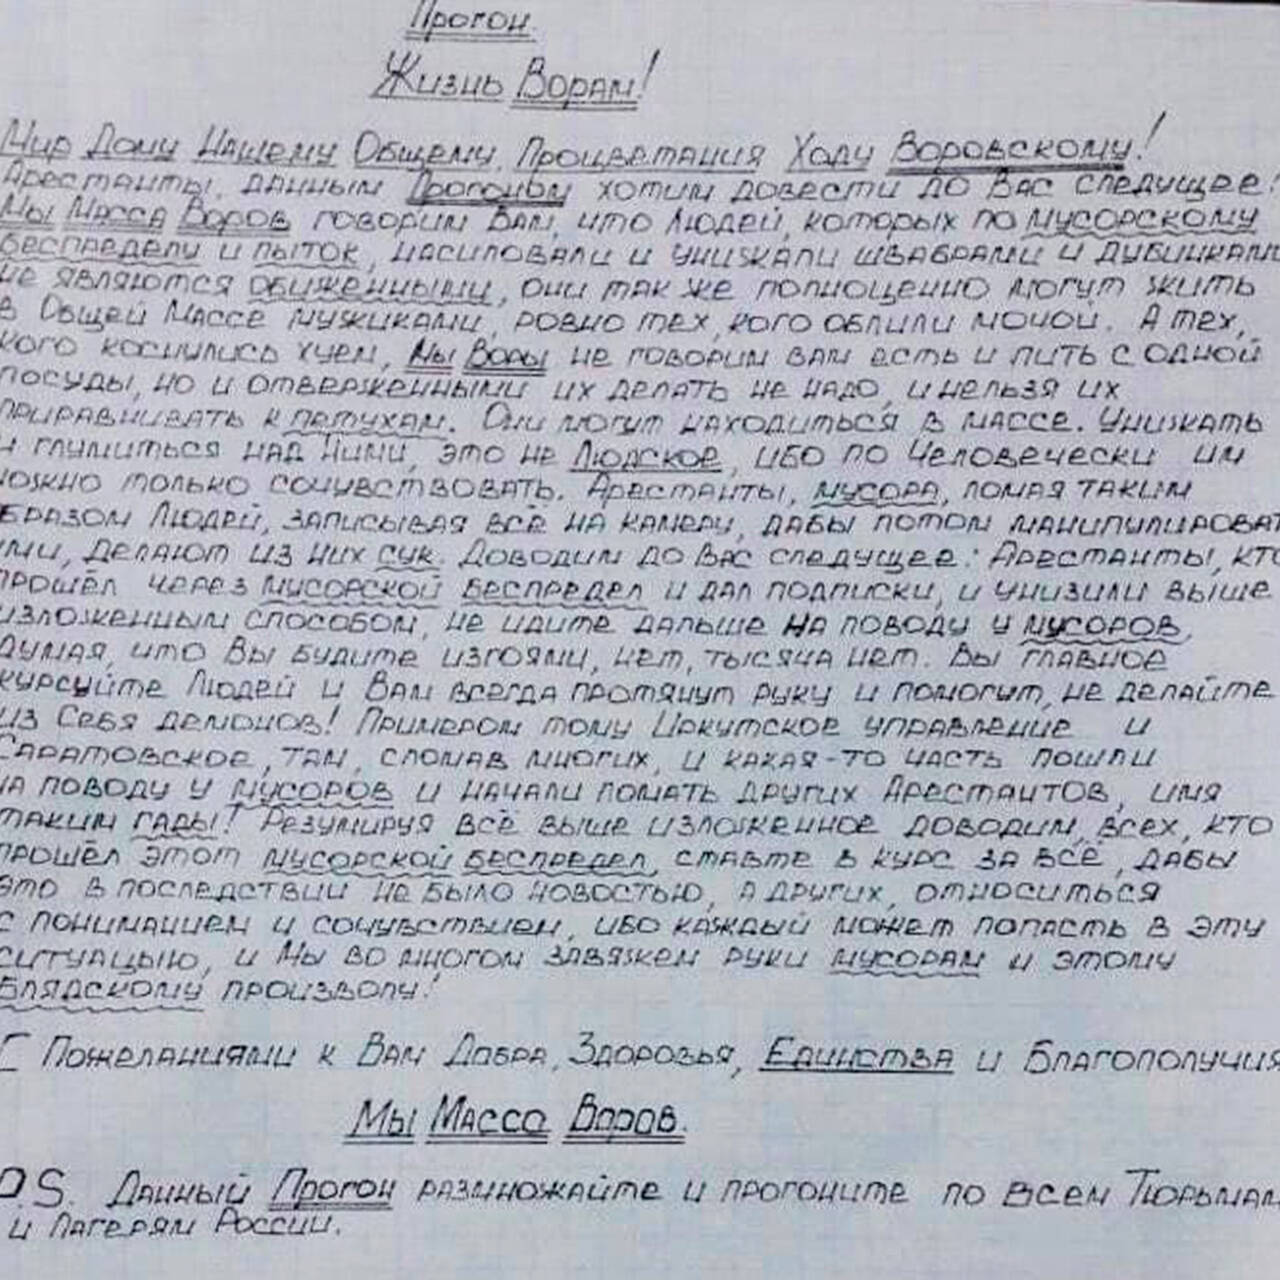 Прогон.
Жизнь Ворам!
Мир Дому Нашему Общему, Процветания Ходу Воровскому!
Арестанты, данным Прогоном хотим довести до Вас следущее:
Мы Масса Воров говорим Вам, что Людей, которых по мусорскому
беспределу и пыток, насиловали и унизжали швабрами и дубинками
не являются обиженными, они так же полноценно могут жить
в Общей Массе мужиками, ровно тех, кого облили мочой. А тех,
кого коснулись хуем, Мы Воры не говорим вам есть и пить с одной
посуды, но и отверженными их делать не надо, и нельзя их
приравнивать к петухам. Они могут находиться в массе. Унизжать
и глумиться над Ними, это не Людское, ибо по Человечески им
можно только сочувствовать. Арестанты, мусора, ломая таким
образом Людей, записывая всё на камеру, дабы потом манипулироват
ими, делают из них сук. Доводим до Вас следущее: Арестанты, кто
прошёл через мусорской беспредел и дал подписки, и унизили выше
изложенным способом, не идите дальше на поводу у мусоров,
думая, что Вы будите изгоями, нет, тысяча нет. Вы главное
курсуйте Людей и Вам всегда протянут руку и помогут, не делайте
из Себя демонов! Примером тому Иркутское управление и
Саратовское, там, сломав многих, и какая-то часть пошли
на поводу у мусоров и начали ломать других Арестантов, имя
таким гады! Резумируя всё выше изложенное доводим, всех, кто
прошёл этот мусорской беспредел, ставте в курс за всё, дабы
это в последствии не было новостью, а других, относиться
с пониманием и сочувствием, ибо каждый может попасть в эту
ситуацыю, и Мы во многом завяжем руки мусорам и этому
блядскому произволу!
С Пожеланиями к Вам Добра, Здоровья, Единства и Благополучия
Мы Масса Воров.
P.S. Данный Прогон размножайте и прогоните по всем Тюрьмам
и Лагерям России.